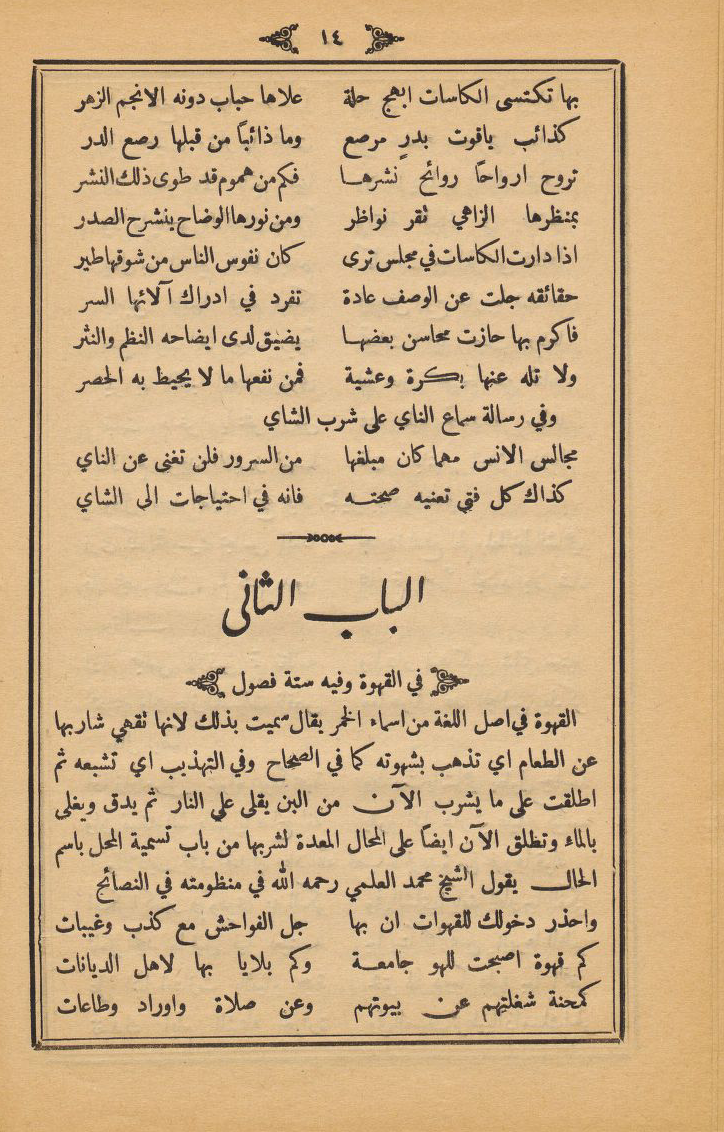 ١٤
بها تكتسى الكاسات ابهج حلة علاها حباب دونه الانجم الزهر
كذائب ياقوت بدرٍ مرصع وما ذائبًا من قبلها رصع الدر
تروح ارواحًا روائح نشرها فكم من هموم قد طوى ذلك النشر
بمنظرها الزاهي تقر نواظر ومن نورها الوضاح ينشرح الصدر
اذا دارت الكاسات في مجلس ترى كان نفوس الناس من شوقها طير
حقائقه جلت عن الوصف عادة تفرد في ادراك آلائها السر
فاكرم بها حازت محاسن بعضها يضيق لدى ايضاحه النظم والنثر
ولا تله عنها بكرة وعشية فمن نفعها ما لا يحيط به الحصر
وفي رسالة سماع الناي على شرب الشاي
مجالس الانس مهما كان مبلغها من السرور فلن تغنى عن الناي
كذاك كل فتي تعنيه صحته فانه في احتياجات الى الشاي
الباب الثانى
في القهوة وفيه ستة فصول
القهوة في اصل اللغة من اسماء الخمر يقال سميت بذلك لانها تقهي شاربها
عن الطعام اي تذهب بشهوته كما في الصحاح وفي التهذيب اي تشبعه ثم
اطلقت على ما يشرب الآن من البن يقلى على النار ثم يدق ويغلى
بالماء وتطلق الآن ايضًا على المحال المعدة لشربها من باب تسمية المحل باسم
الحال يقول الشيخ محمد العلمي رحمه الله في منظومته في النصائح
واحذر دخولك للقهوات ان بها جل الفواحش مع كذب وغيبات
كم قهوة اصبحت للهو جامعة وكم بلايا بها لاهل الديانات
كمحنة شغلتهم عن بيوتهم وعن صلاة واوراد وطاعات